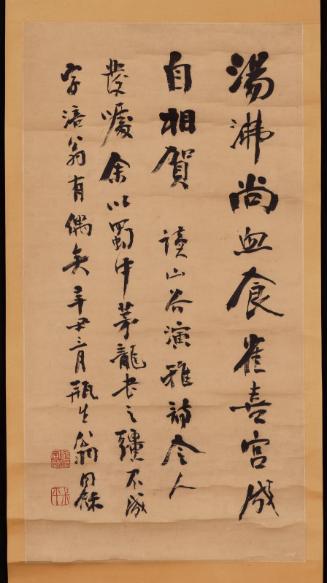 湯沸尚血食雀喜宮成
自相賀 讀山谷演雅詩令人
發噱余以蜀中茅龍書之彊不成
字涪翁有偶矣辛丑月瓶生翁同龢